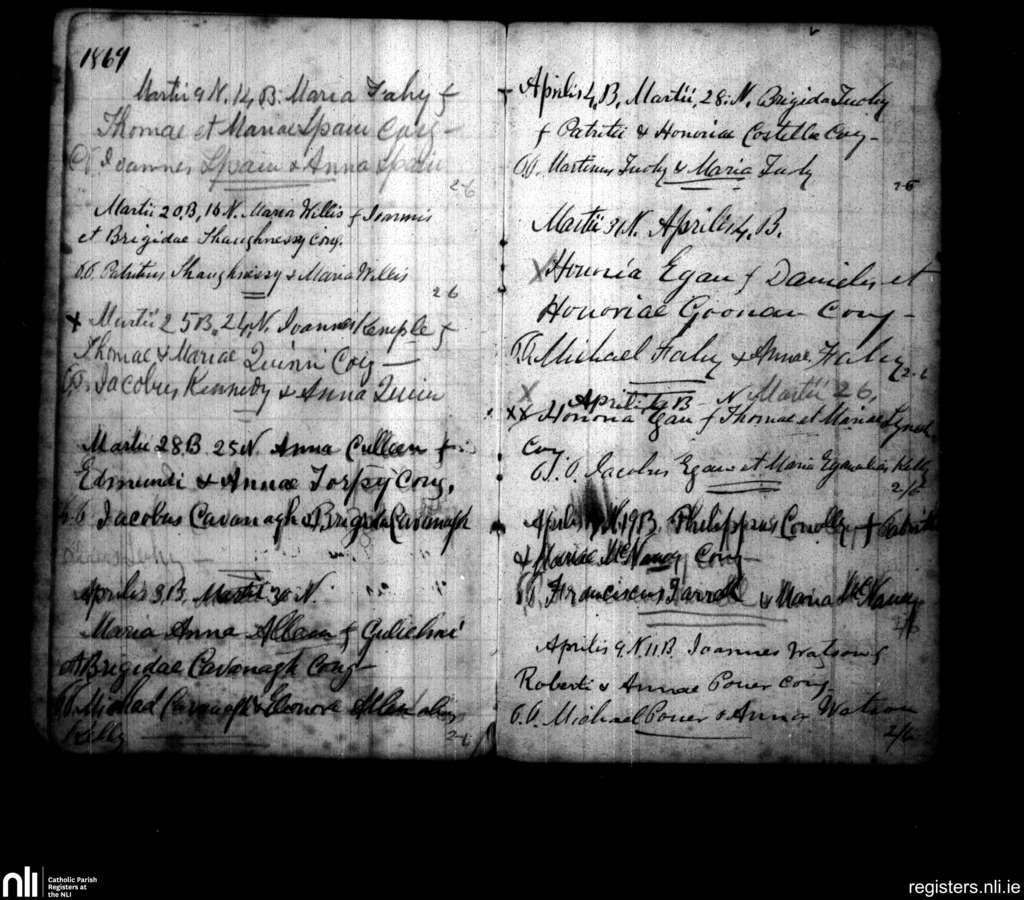 1869
Martii 9 N. 14 B. Maria Fahy f
Thomae et Mariae Spain Conj -
Joannes Spain & Anna Spain
2-6
Martii 20, B, 16 N. Maria Willis f Joannis
et Brigidae Shaughnessy Conj.
P.P. Patritius Shaughnessy & Maria Willis
2 6
x Martii 25 B, 24, N. Joannes Kemple f
Thomae & Mariae Quinn Conj —
P.P. Jacobus Kennedy & Anna Quinn
Martii 28 B 25 N. Anna Cullean f
Edmundi & Annae Torpy Conj.
Jacobus Cavanagh & Brigida Cavanagh
Aprilis 3 B. Martii 30 N.
Maria Anna f Gulielmi
et Brigidae Cavanagh Conj -
P.P. Michael Cavanagh & Eleonora alias
Kelly
2-6
+ Aprilis 4, B, Martii, 28. N. Brigida Tuohy
f Patritii & Honoriae Costello Conj -
P.P. Martinus Tuohy & Maria Tuohy
2-6
Martii 31 N. Aprilis 4, B.
X Honoria Egan f Danielis et
Honoriae Goonan Conj -
P.P. Michael Fahy & Annae Fahy
2-6
X Aprilis 4 B - N Martii 26.
XX Honoria Egan f Thomae et Mariae Lynch
Conj
P.P. Jacobus Egan et Maria Egan alias Kelly
2/6
Aprilis 19 B. Philippus Conolly f Patritii
& Mariae McNancy Conj -
P.P. Franciscus Farrell & Maria McNancy
2/6
Aprilis 9 N. 11 B. Joannes Watson f
Roberti & Annae Power Conj
P.P. Michael Power & Anna Watson
2/6
nli
Catholic Parish
Registers at
the NLI
registers.nli.ie